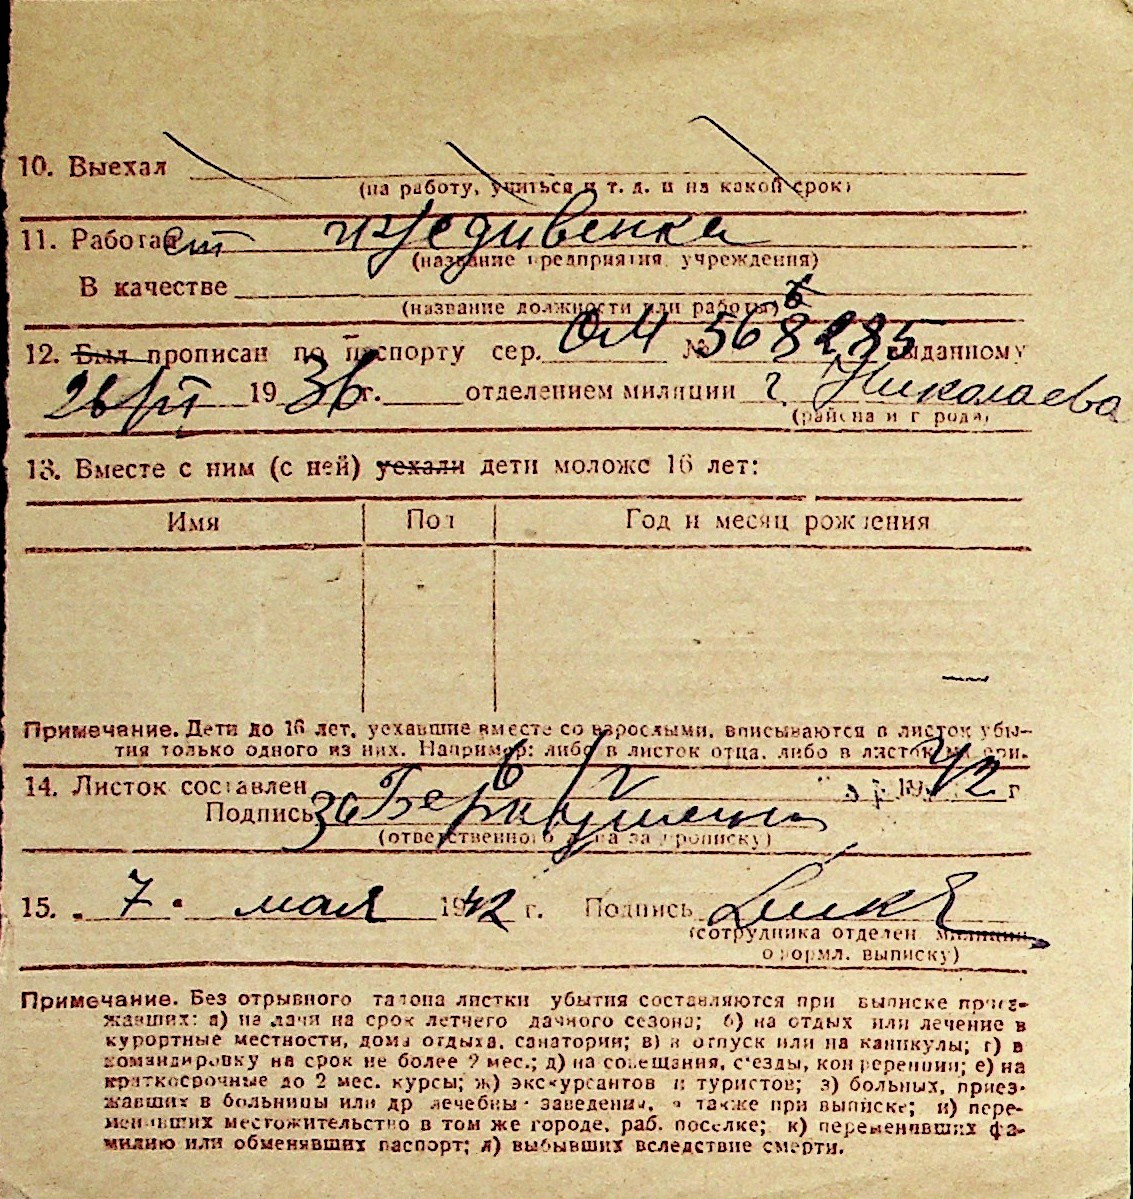 10. Выехал
(на работу, учиться и т. д. и на какой срок)
11. Работал ст иждивенка
(название предприятия, учреждения)
В качестве
(название должности или работы)
12. Был прописан по паспорту сер. ОМ № 568285 выданному
26/III 1936 г. отделением милиции г. Николаева
(района и города)
13. Вместе с ним (с ней) уехали дети моложе 16 лет:
Имя Пол Год и месяц рождения
Примечание. Дети до 16 лет, уехавшие вместе со взрослыми, вписываются в листок убы-
тия только одного из них. Например: либо в листок отца, либо в листок
14. Листок составлен 6/V 1942 г
Подпись
(ответственного лица за прописку)
15. 7. мая 1942 г. Подпись
(сотрудника отделен милиции,
оформл. выписку)
Примечание. Без отрывного талона листки убытия составляются при выписке приез-
жавших: а) на дачи на срок летнего дачного сезона; б) на отдых или лечение в
курортные местности, дома отдыха, санатории; в) в отпуск или на каникулы; г) в
командировку на срок не более 2 мес.; д) на совещания, с'езды, конференции; е) на
краткосрочные до 2 мес. курсы; ж) экскурсантов и туристов; з) больных, приез-
жавших в больницы или др лечебны заведения, а также при выписке; и) пере-
менивших местожительство в том же городе, раб. поселке; к) переменивших фа-
милию или обменявших паспорт; л) выбывших вследствие смерти.